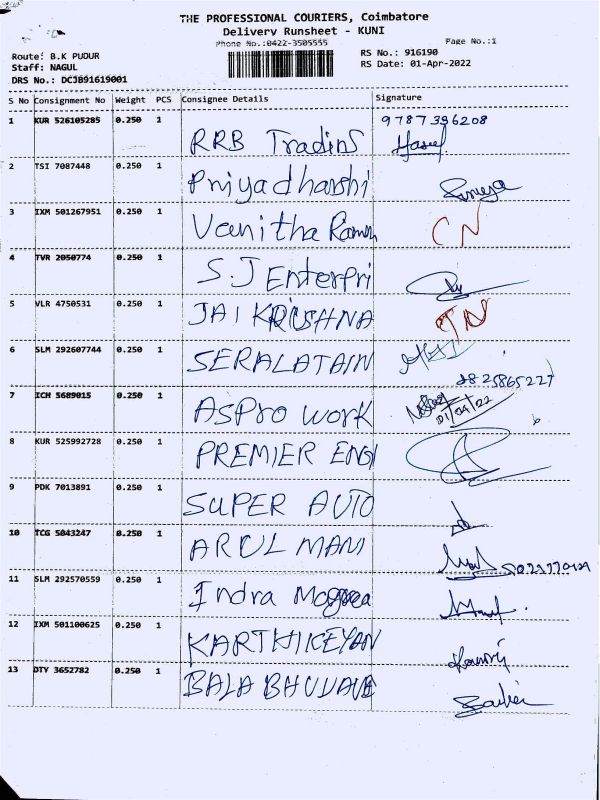 THE PROFESSIONAL COURIERS, Coimbatore
Delivery Runsheet - KUNI
Phone No.:0422-3505555
Page No.:1
Route: B.K PUDUR
RS No.: 916190
Staff: NAGUL
RS Date: 01-Apr-2022
DRS No.: DCJ891619001
S No Consignment No Weight PCS Consignee Details Signature
1 KUR 526105285 0.250 1 RRB Tradins 9787396208
2 TSI 7087448 0.250 1 Priyadharshi
3 IXM 501267951 0.250 1 Vanitha Raman CN
4 TVR 2050774 0.250 1 S.J Enterpri
5 VLR 4750531 0.250 1 JAI KRISHNA TN
6 SLM 292607744 0.250 1 SERALATAIN
7 ICH 5689015 0.250 1 ASPro work 01/04/22
8 KUR 525992728 0.250 1 PREMIER ENGI
9 PDK 7013891 0.250 1 SUPER AUTO
10 TCG 5043247 0.250 1 ARUL MANI
11 SLM 292570559 0.250 1 Indra
12 IXM 501100625 0.250 1 KARTHIKEYAN
13 DTY 3652782 0.250 1 BALA